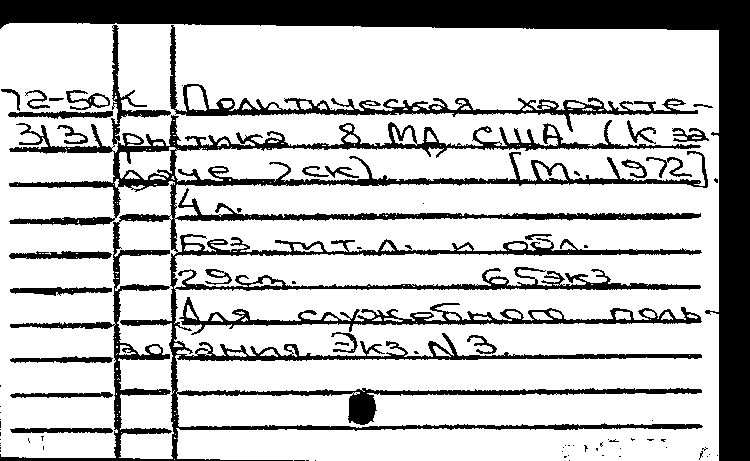 72-50к Политическая характе-
3131 рытика 8 МД США (к за-
даче 7ск). [М., 1972].
4 л.
Без тит. л. и обл.
29см. 65экз
Для служебного поль-
зования. Экз. N 3.